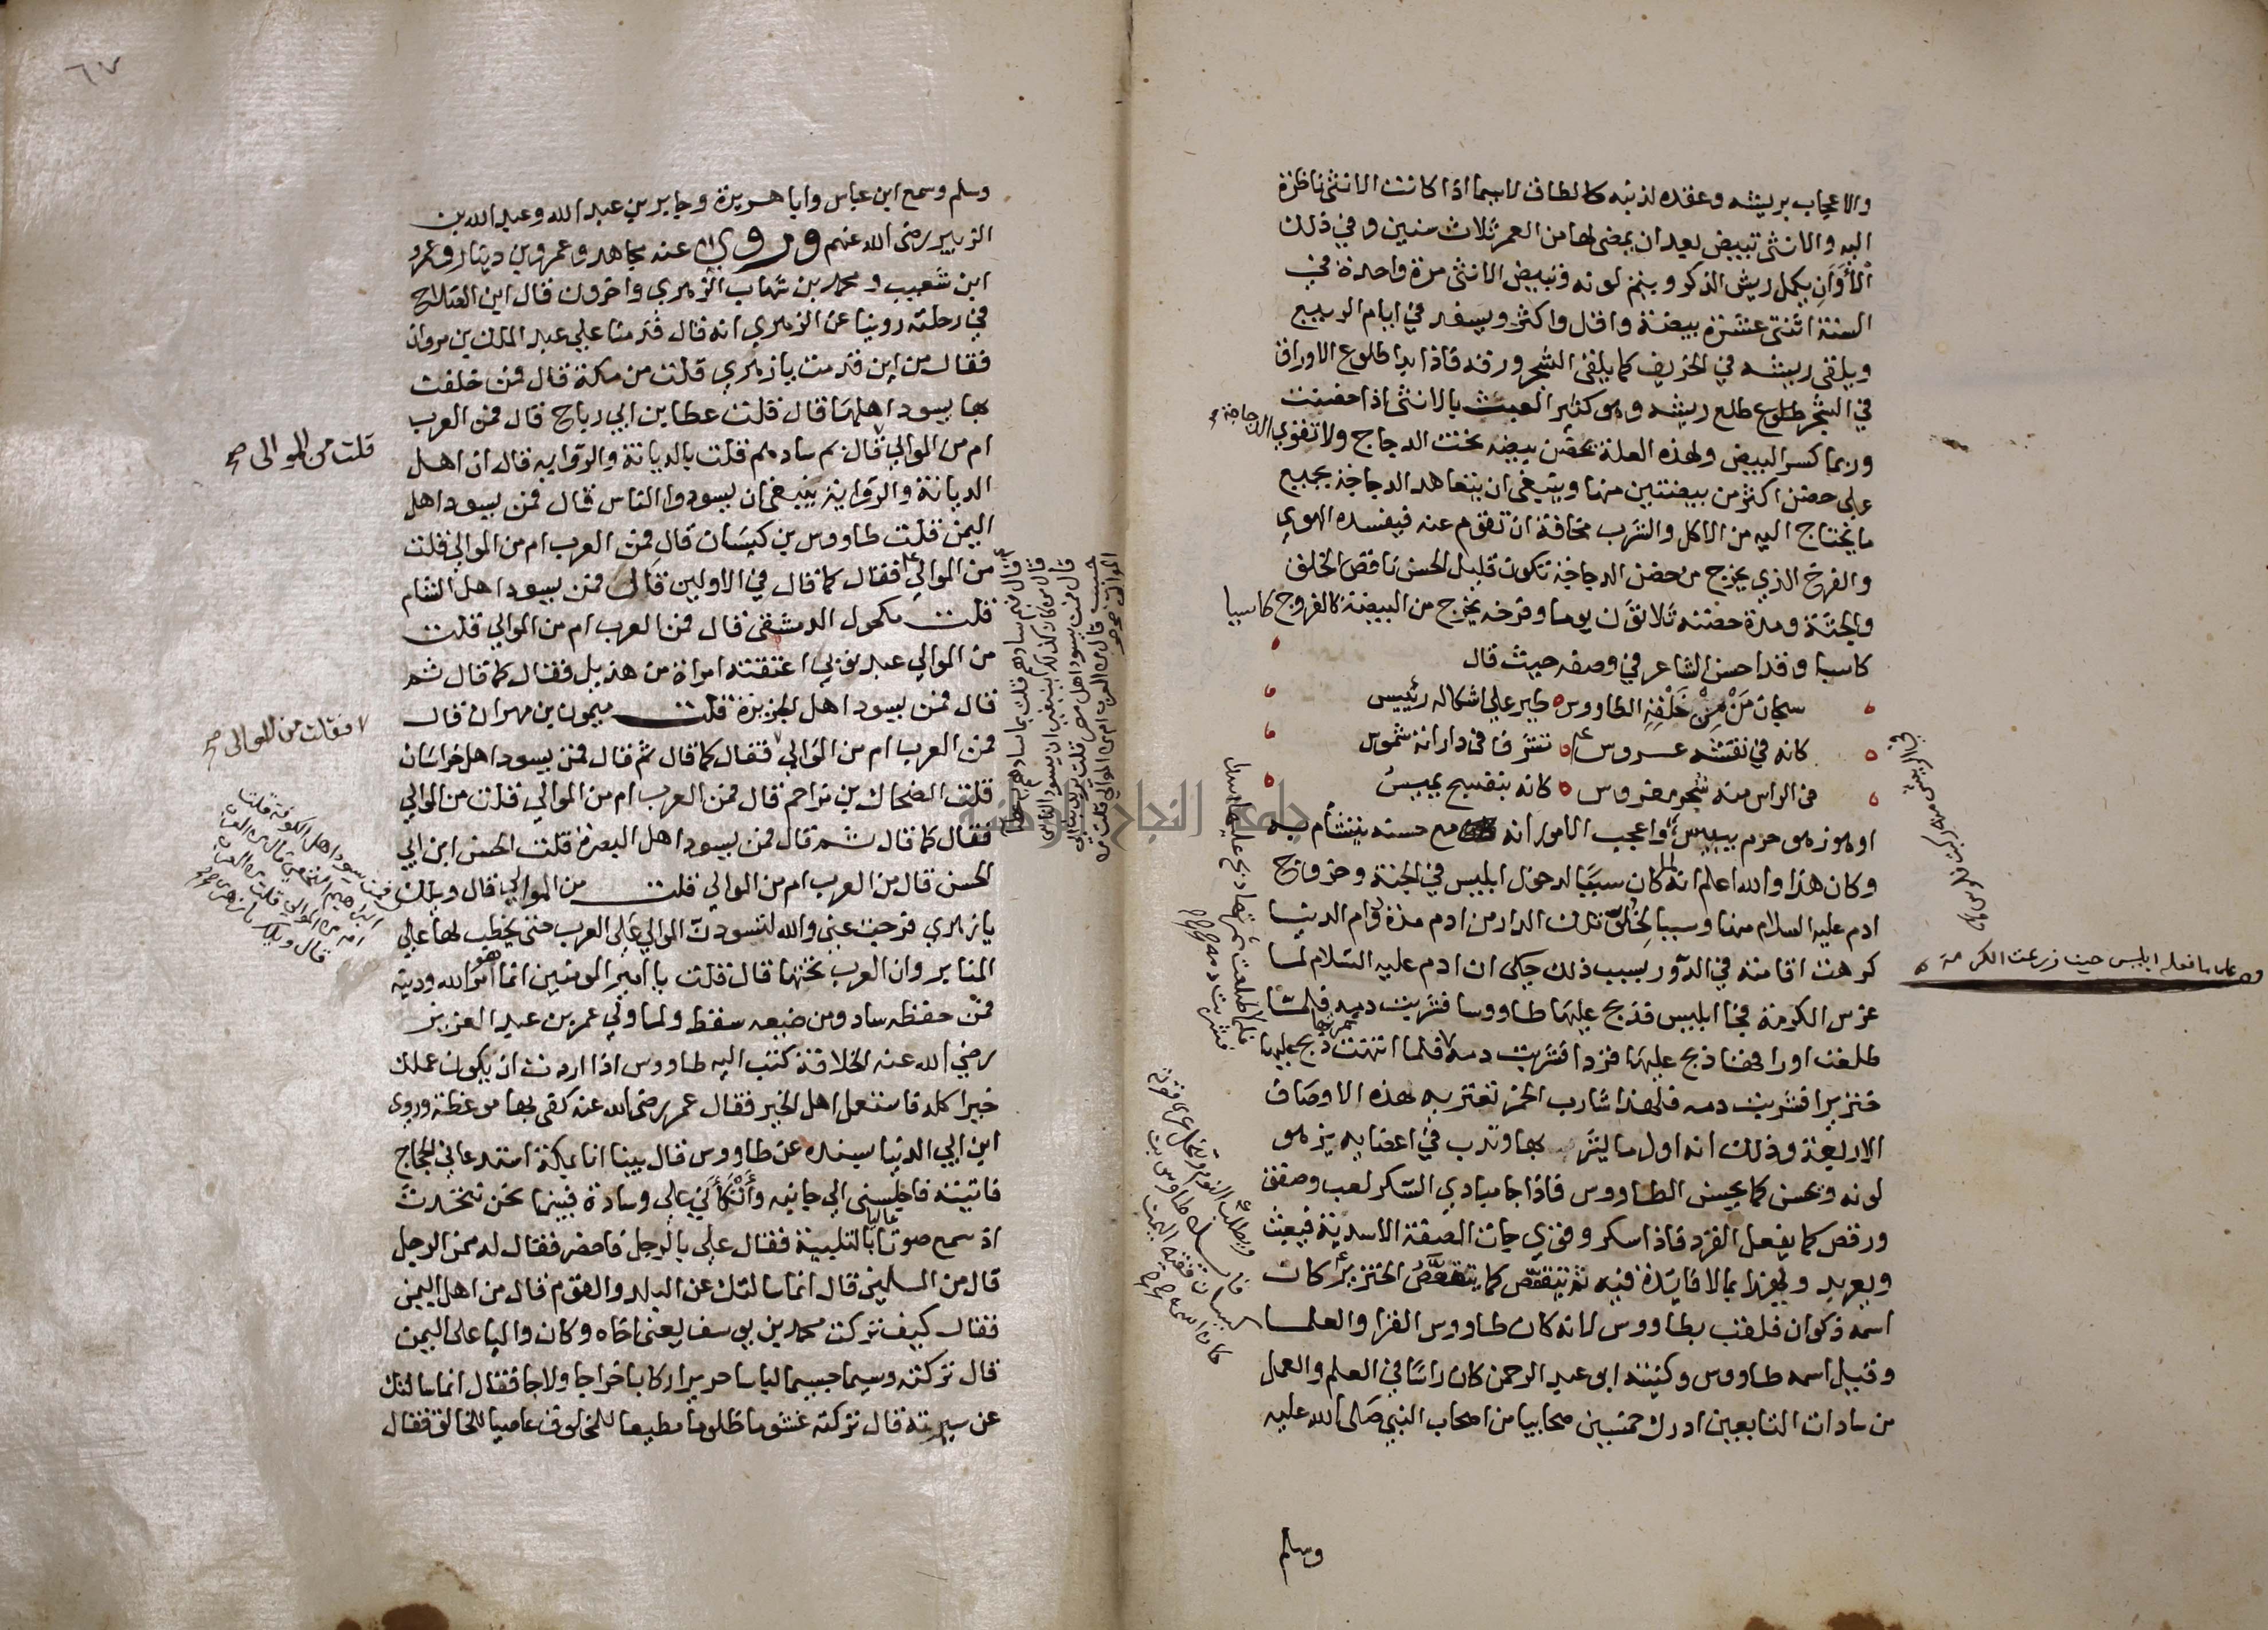 والاعجاب بريشه وعقده لذنبه كالطاق لاسيما اذا كانت الانثى ناظرة
اليه والانثى تبيض بعد ان يمضى لها من العمر ثلاث سنين وفي ذلك
الأوان يكمل ريش الذكر ويتم لونه وتبيض الانثى مرة واحدة في
السنة اثنتى عشرة بيضة واقل واكثر ويسفد في ايام الربيع
ويلقى ريشه في الخريف كما يلقى الشجر ورقه فاذا بدا طلوع الاوراق
في الشجر طلوع طلع ريشه وهو كثير العبث بالانثى اذا حضنت
وربما كسر البيض ولهذه العلة يحضن بيضه تحت الدجاج ولا تقوى الدجاجة
على حضن اكثر من بيضتين منها وينبغى ان يتعاهد الدجاجة بجميع
ما يحتاج اليه من الاكل والشرب مخافة ان تقوم عنه فيفسده الهوى
والفرخ الذي يخرج من حضن الدجاجة تكون قليل الحسن ناقص الخلق
والجثة ومدة حضنه ثلاثون يوما وفرخه يخرج من البيضة كالفروج كاسيا
كاسبا وقد احسن الشاعر في وصفه حيث قال
سبحان مَنْ مِنْ خَلْقِهِ الطاووس طير على اشكاله رئييس
كانه في نقشه عروس تشرق في دارانة شموس
في الراس منه شجر مغروس كانه بنفسج يميس
او هو زهو حزم يبيس واعجب الامور انه مع حسنه يتشأم به
وكان هذا والله اعلم انه لما كان سببا لدخول ابليس في الجنة وخروج
ادم عليه السلام منها وسببا لخلو تلك الدار من ادم مدة دوام الدنيا
كرهت اقامته في الدور بسبب ذلك حكى ان ادم عليه السلام لما
غرس الكرمة فجا ابليس فذبح عليها طاووسا فشربت دمه فلما
طلعت اوراقها ذبح عليها قردا فشربت دمه فلما انتهت ذبح عليها
خنزيرا فشربت دمه فلهذا شارب الخمر تعتريه هذه الاوصاف
الاربعة وذلك انه اول ما يشربها وتدب في اعضايه يزهو
لونه ويحسن كما يحسن الطاووس فاذا جا مبادي السكر لعب وصفق
ورقص كما يفعل القرد فاذا سكر وقوي جات الصفة الاسدية فيعبث
ويعربد ويهذا بمالا فايدة فيه ثم يتقعص كما يتقعص الخنزير كان
اسمه ذكوان فلقب بطاووس لانه كان طاووس القرا والعلما
وقيل اسمه طاووس وكنيته ابو عبد الرحمن كان راسا في العلم والعمل
من سادات التابعين ادرك خمسين صحابيا من اصحاب النبي صلى الله عليه
وسلم
وصل ما فعله ابليس حيث زرعت الكرمة
٦٧
وسلم وسمع ابن عباس وابا هريرة وجابر بن عبد الله وعبد الله بن
الزبير رضى الله عنهم وروى عنه مجاهد وعمرو بن دينار وعمرو
ابن شعيب ومحمد بن شهاب الزهري واخرون قال ابن الصلاح
في رحلته روينا عن الزهري انه قال قدمت على عبد الملك بن مروان
فقال من اين قدمت يا زهري قلت من مكة قال فمن خلفت
بها يسود اهلها قال قلت عطا بن ابي رباح قال فمن العرب
ام من الموالي قال بم سادهم قلت بالديانة والرواية قال ان اهل
الديانة والرواية ينبغي ان يسودوا الناس قال فمن يسود اهل
اليمن قلت طاووس بن كيسان قال فمن العرب ام من الموالي قلت
من الموالي فقال كما قال في الاولين قال فمن يسود اهل الشام
قلت مكحول الدمشقى قال فمن العرب ام من الموالي قلت
من الموالي عبد نوبي اعتقته امراة من هذيل فقال كما قال ثم
قال فمن يسود اهل الجزيرة قلت ميمون بن مهران قال
فمن العرب ام من الموالي فقال كما قال ثم قال فمن يسود اهل خراسان
قلت الضحاك بن مزاحم قال فمن العرب ام من الموالي قلت من الموالي
فقال كما قال ثم قال فمن يسود اهل البصرة قلت الحسن ابن ابي
الحسن قال من العرب ام من الموالي قلت من الموالي قال ويلك
يا زهري فرجت عنى والله لتسودن الموالي على العرب حتى يخطب لها على
المنابر وان العرب تحتها قال قلت يا امير المومنين انما هو امر الله ودينه
فمن حفظه ساد ومن ضيعه سقط ولما ولي عمر بن عبد العزيز
رضي الله عنه الخلافة كتب اليه طاووس اذا اردت ان يكون عملك
خيرا كله فاستعمل اهل الخير فقال عمر رضى الله عنه كفى بها موعظة وروى
ابن ابي الدنيا بسنده عن طاووس قال بينا انا بمكة استدعاني الحجاج
فاتيته فاجلسنى الى جانبه وأتكأني على وسادة فبينما نحن نتحدث
اذ سمع صوتا عاليا بالتلبية فقال علي بالرجل فاحضر فقال له ممن الرجل
قال من المسلمين قال انما سالتك عن البلد والقوم قال من اهل اليمن
فقال كيف تركت محمد بن يوسف يعنى اخاه وكان واليا على اليمن
قال تركته وسيما جسيما لباسا حريرا ركابا خراجا ولاجا فقال انما سالتك
عن سيرته قال تركته غشوما ظلوما مطيعا للمخلوق عاصيا للخالق فقال
قلت من الموالى صح
فقلت من الموالى صح
فمن يسود اهل الكوفة قلت
ابراهيم النخعي قال من العرب
ام من الموالي قلت من العرب
قال ويلك يا زهري
قال فبم سادهم قلت بما سادهم به عطا
قال من كان كذلك ينبغي ان يسود الناس
قال فمن يسود اهل مصر قلت يزيد بن ابي
حبيب قال من العرب ام من الموالي قلت من
الموالي
جامعة النجاح الوطنية